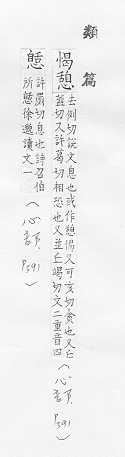 類篇
愒憩
去例切說文息也或作憩愒又可亥切貪也又丘
蓋切又許葛切相恐也又並丘竭切文二重音四
(心部 P391)
憇
許罽切息也詩召伯
所憇徐邈讀文一
(心部 P391)